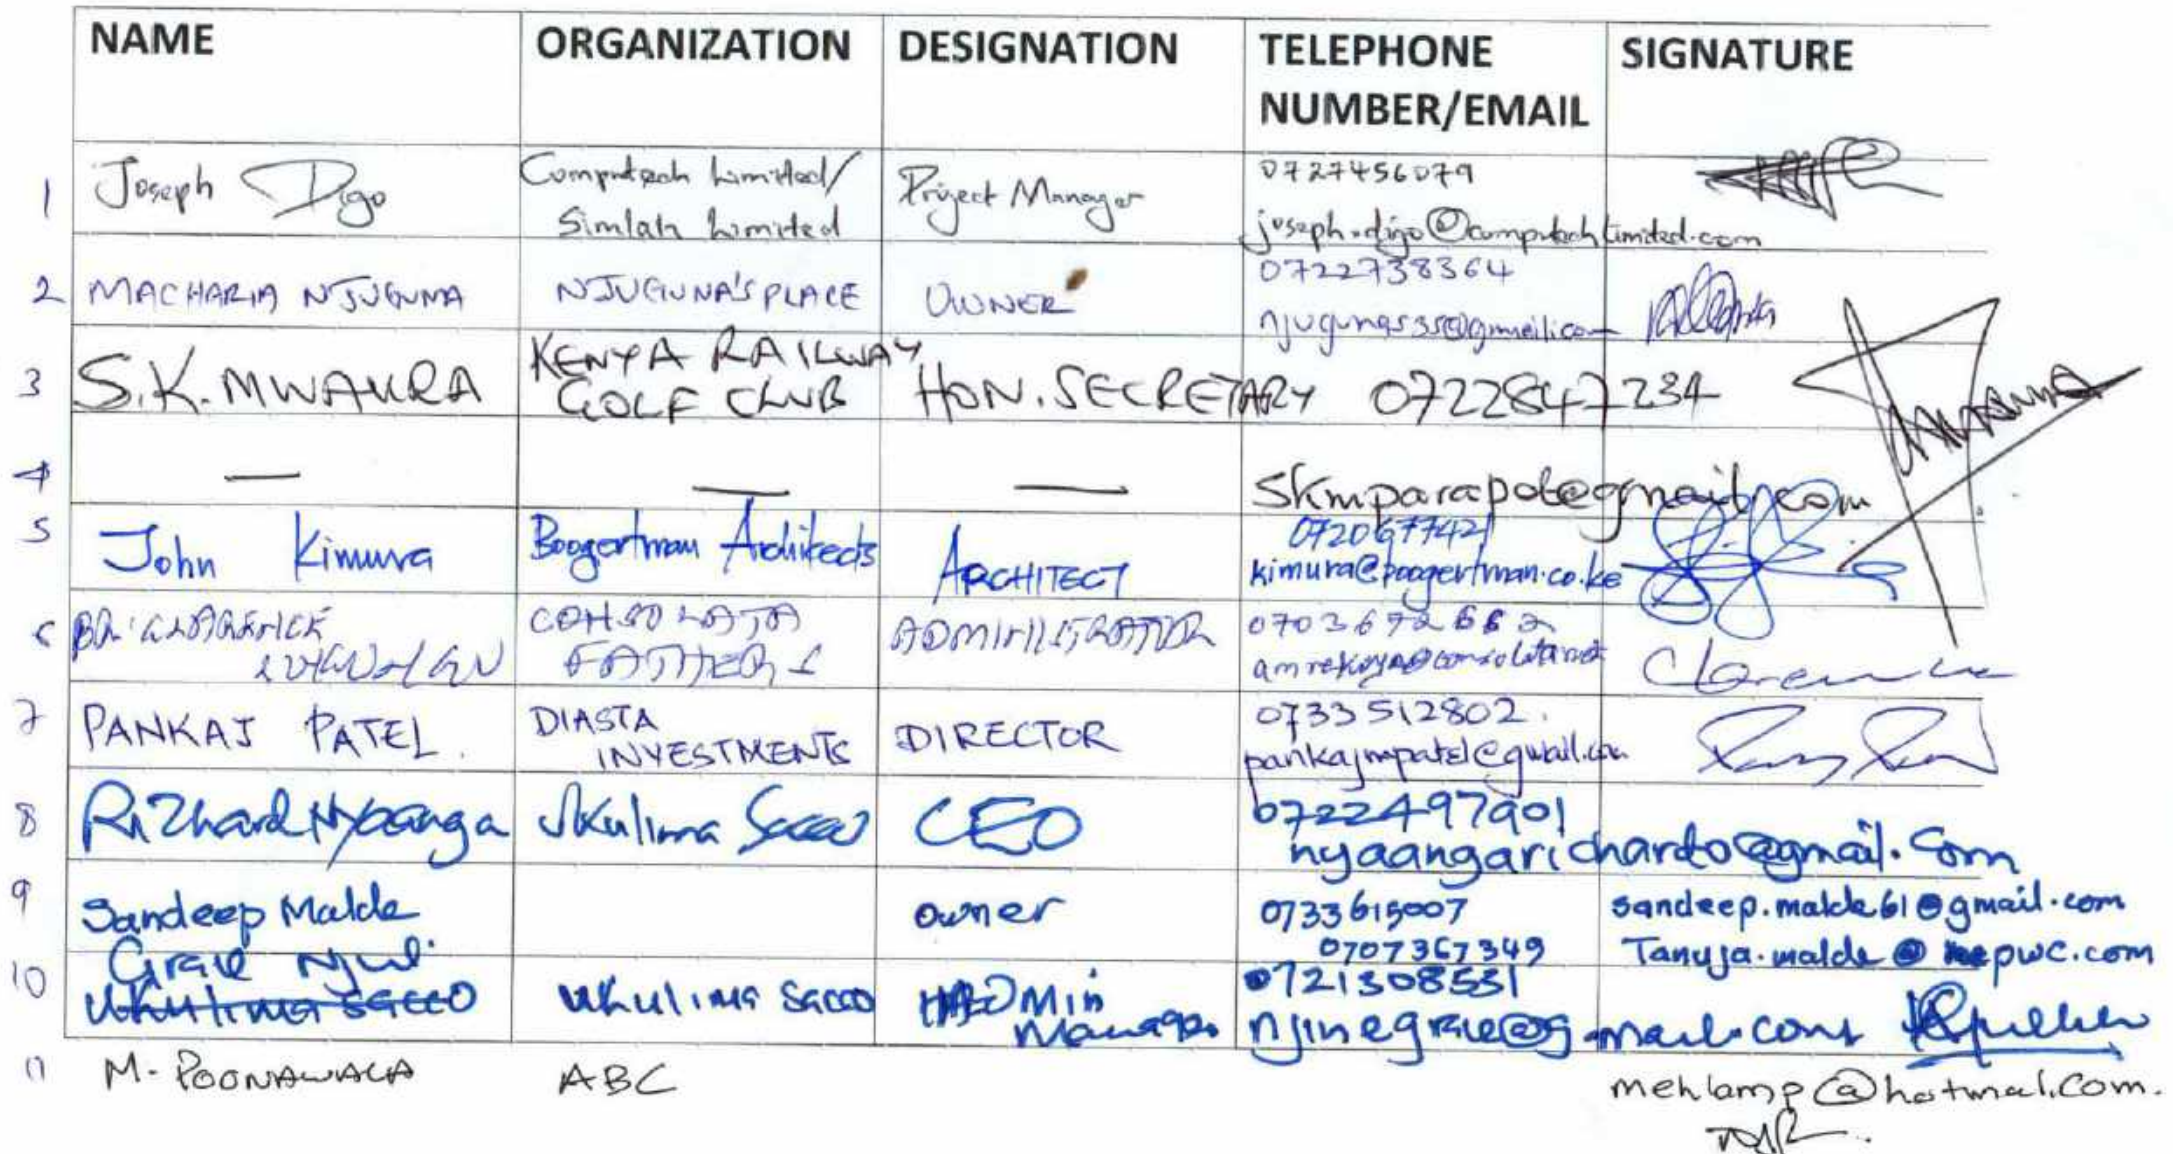 NAME ORGANIZATION DESIGNATION TELEPHONE NUMBER/EMAIL SIGNATURE
1 Joseph Digo Computech Limited/ Simlath Limited Project Manager 0727456079
joseph.digo@computechlimited.com
2 MACHARIA NJUGUNA NJUGUNA'S PLACE OWNER 0722738364
3 S.K. MWAURA KENYA RAILWAY GOLF CLUB HON. SECRETARY 0722847234
4 — — — skmparapet@gmail.com
5 John Kimura Boogertman Architects ARCHITECT 0720677421
kimura@boogertman.co.ke
6 BR. CLARENCE CONSOLATA FATHERS ADMINISTRATOR 0703672662
7 PANKAJ PATEL. DIASTA INVESTMENTS DIRECTOR 0733512802.
pankajmpatel@gmail.com
8 Richard Nyaanga Ukulima Sacco CEO 0722497901
nyaangarichardo@gmail.com
9 Sandeep Malde owner 0733615007 sandeep.malde61@gmail.com
0707367349 Tanuja.malde@pwc.com
10 Grace Njui Ukulima Sacco Ukulima Sacco Admin Manager 0721308531
njinegrace@gmail.com
11 M. POONAWALA ABC mehlamp@hotmal.com.